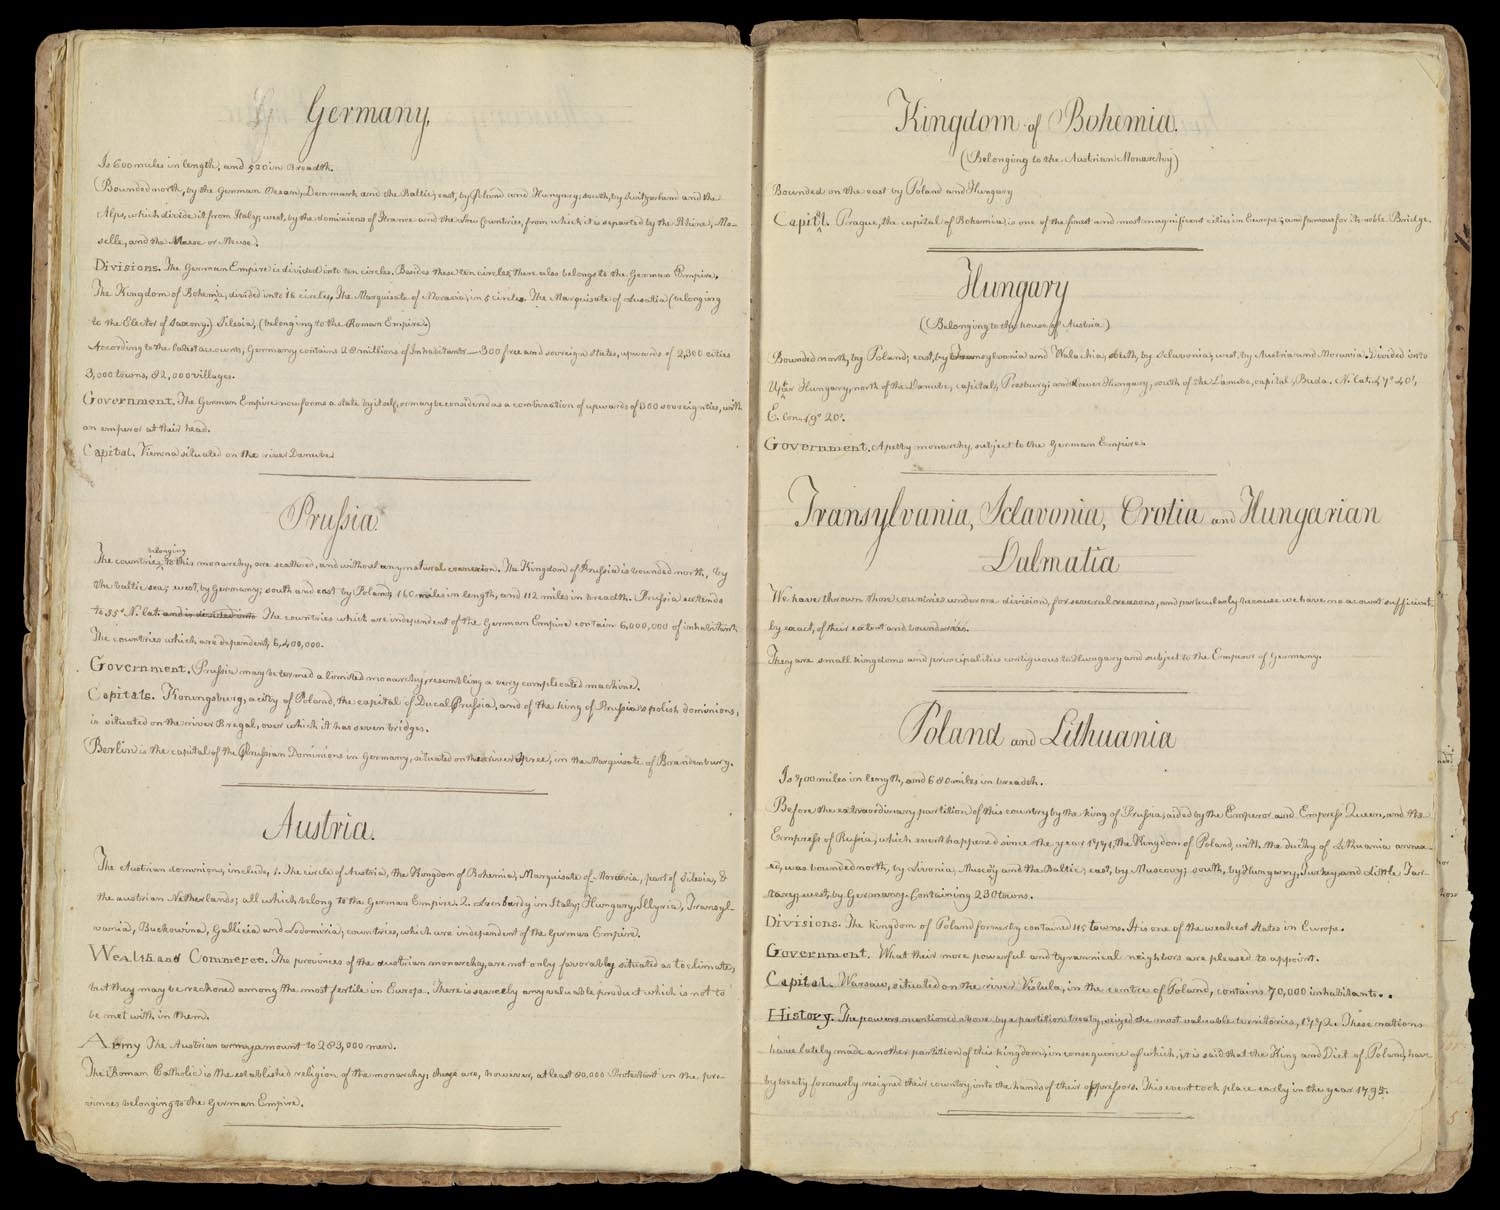 Germany,
Is 600 miles in length, and 520 in Breadth.
Bounded north, by the German Ocean, Denmark and the Baltic; east, by Poland and Hungary; south, by Switzerland and the
Alps, which divide it from Italy; west, by the dominions of France and the Low Countries, from which it is separted by the Rhine, Mo-
selle, and the Maese or Meuse.
Divisions. The German Empire is divided into ten circles. Besides these ten circles, there also belongs to the German Empire,
The Kingdom of Bohemia, divided into 16 circles, The Marquisate of Moravia, in 5 circles. The Marquisate of Lusatia (belonging
to the Elector of Saxony.) Silesia, (belonging to the Roman Empire.)
According to the latest accounts, Germany contains 28 millions of Inhabitants—300 free and sovereign states, upwards of 2,300 cities
3,000 towns, 82,000 villages.
Government. The German Empire now forms a state by itself, or may be considered as a combination of upwards of 300 sovereignties, with
an emperor at their head.
Capital. Vienna situated on the river Danube.
Prussia.
The countries belonging to this monarchy, are scattered, and without any natural connexion. The Kingdom of Prussia is bounded north, by
the baltic sea; west, by Germany; south and east by Poland; 160 miles in length, and 112 miles in breadth. Prussia extends
to 55° N. lat. and is divided into The countries which are independent of the German Empire contain 6,000,000 of inhabitants
The countries which are dependent, 6,400,000.
Government. Prussia may be termed a limited monarchy, resembling a very complicated machine.
Capitals. Koningsburg, a city of Poland, the capital of Ducal Prussia, and of the king of Prussia's polish dominions,
is situated on the river Pregal, over which it has seven bridges.
Berlin is the capital of the Prussian Dominions in Germany, situated on the river Spree, in the Marquisate of Brandenburg.
Austria.
The Austrian dominions, include, 1. The circle of Austria, the Kingdom of Bohemia, Marquisate of Moravia, part of Silesia, &
the austrian Netherlands; all which belong to the German Empire. 2. Lombardy in Italy; Hungary, Illyria, Transyl-
vania, Buckowina, Gallicia and Lodomiria; countries, which are independent of the German Empire.
Wealth and Commerce. The provinces of the austrian monarchy, are not only favorably situated as to climate,
but they may be reckoned among the most fertile in Europe. There is scarcely any valuable product which is not to
be met with in them.
Army The Austrian army amount to 283,000 men.
The Roman Catholic is the established religion of the monarchy; there are, however, at least 80,000 Protestant in the pro-
vinces belonging to the German Empire.
Kingdom of Bohemia.
(Belonging to the Austrian Monarchy)
Bounded on the east by Poland and Hungary
Capital. Prague, the capital of Bohemia, is one of the finest and most magnificent cities in Europe; and famous for its noble Bridge.
Hungary
(Belonging to the house of Austria)
Bounded north, by Poland; east, by Transylvania and Walachia; south, by Sclavonia; west, by Austria and Moravia. Divided into
Upper Hungary, north of the Danube, capital, Presburg; and Lower Hungary, south of the Danube, capital, Buda. N. lat. 47° 40',
E. lon. 19° 20'.
Government. A petty monarchy, subject to the German Empire.
Transylvania, Sclavonia, Crotia and Hungarian
Dalmatia
We have thrown these countries under one division, for several reasons, and particularly because we have no account sufficient-
ly exact, of their extent and boundaries.
They are small kingdoms and principalities contiguous to Hungary and subject to the Emperor of Germany.
Poland and Lithuania
Is 700 miles in length, and 680 miles in breadth.
Before the extraordinary partition of this country by the king of Prussia, aided by the Emperor and Empress Queen, and the
Empress of Russia; which event happened since the year 1771, the Kingdom of Poland, with the duchy of Lithuania annex-
ed, was bounded north, by Livonia, Muscovy and the Baltic; east, by Muscovy; south, by Hungary, Turkey and Little Tar-
tary; west, by Germany. Containing 230 towns.
Divisions. The kingdom of Poland formerly contained 115 towns. It is one of the weakest States in Europe.
Government. What their more powerful and tyrannical neighbors are pleased to appoint.
Capital. Warsaw, situated on the river Vistula, in the centre of Poland, contains 70,000 inhabitants..
History. The powers mentioned above by a partition treaty, seized the most valuable territories, 1772. These nations
have lately made another partition of this kingdom; in consequence of which, it is said that the King and Diet of Poland, have
by treaty formerly resigned their country into the hands of their oppressors. This event took place early in the year 1795.